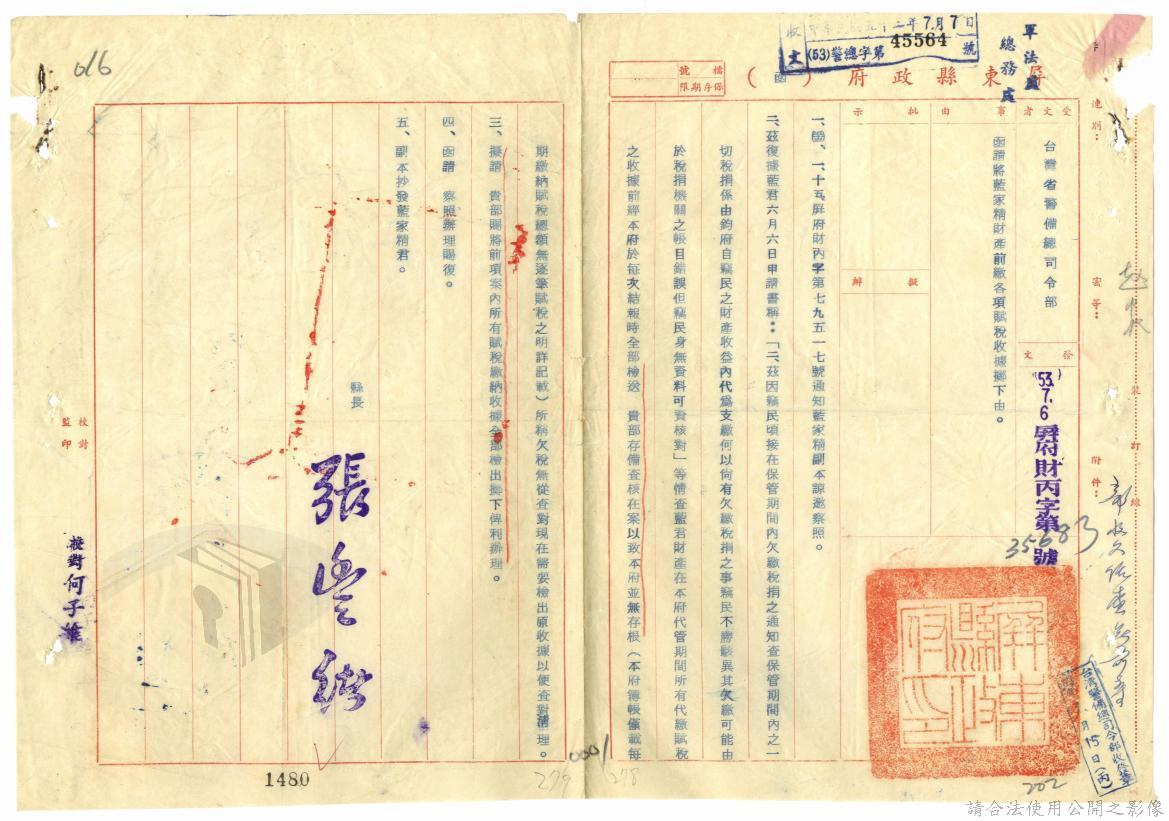 收文
中華民國五十三年7月7日
(53)警總字第45564號
軍法處
總務處
屏東縣政府(函)
檔號
保存期限
速別:
密等:
附件:
裝訂線
受文者
台灣省警備總司令部
發文
(53)7.6屏府財丙字第35683號
事由
函請將藍家精財產前繳各項賦稅收據擲下由。
批示
擬辦
一、一、十五屏府財丙字第七九五一七號通知藍家精副本諒邀察照。
二、茲復據藍君六月六日申請書稱:「二、茲因竊民頃接在保管期間內欠繳稅捐之通知查保管期間內之一
切稅捐係由鈞府自竊民之財產收益內代為支繳何以尚有欠繳稅捐之事竊民不勝駭異其欠繳可能由
於稅捐機關之帳目錯誤但竊民身無資料可資核對」等情查藍君財產在本府代管期間所有代繳賦稅
之收據前經本府於每次結報時全部檢送 貴部存備查核在案以致本府並無存根(本府簿帳僅載每
期繳納賦稅總額無逐筆賦稅之明詳記載)所稱欠稅無從查對現在需要檢出原收據以便查對清理。
三、擬請 貴部賜將前項案內所有賦稅繳納收據全部檢出擲下俾利辦理。
四、函請 察照辦理賜復。
五、副本抄發藍家精君。
縣長
張豐緒
校對
監印
校對何子雄
屏東縣政府印
台灣警備總司令部收發室
月15日(丙)
016
1480
0001
279
278
202
請合法使用公開之影像